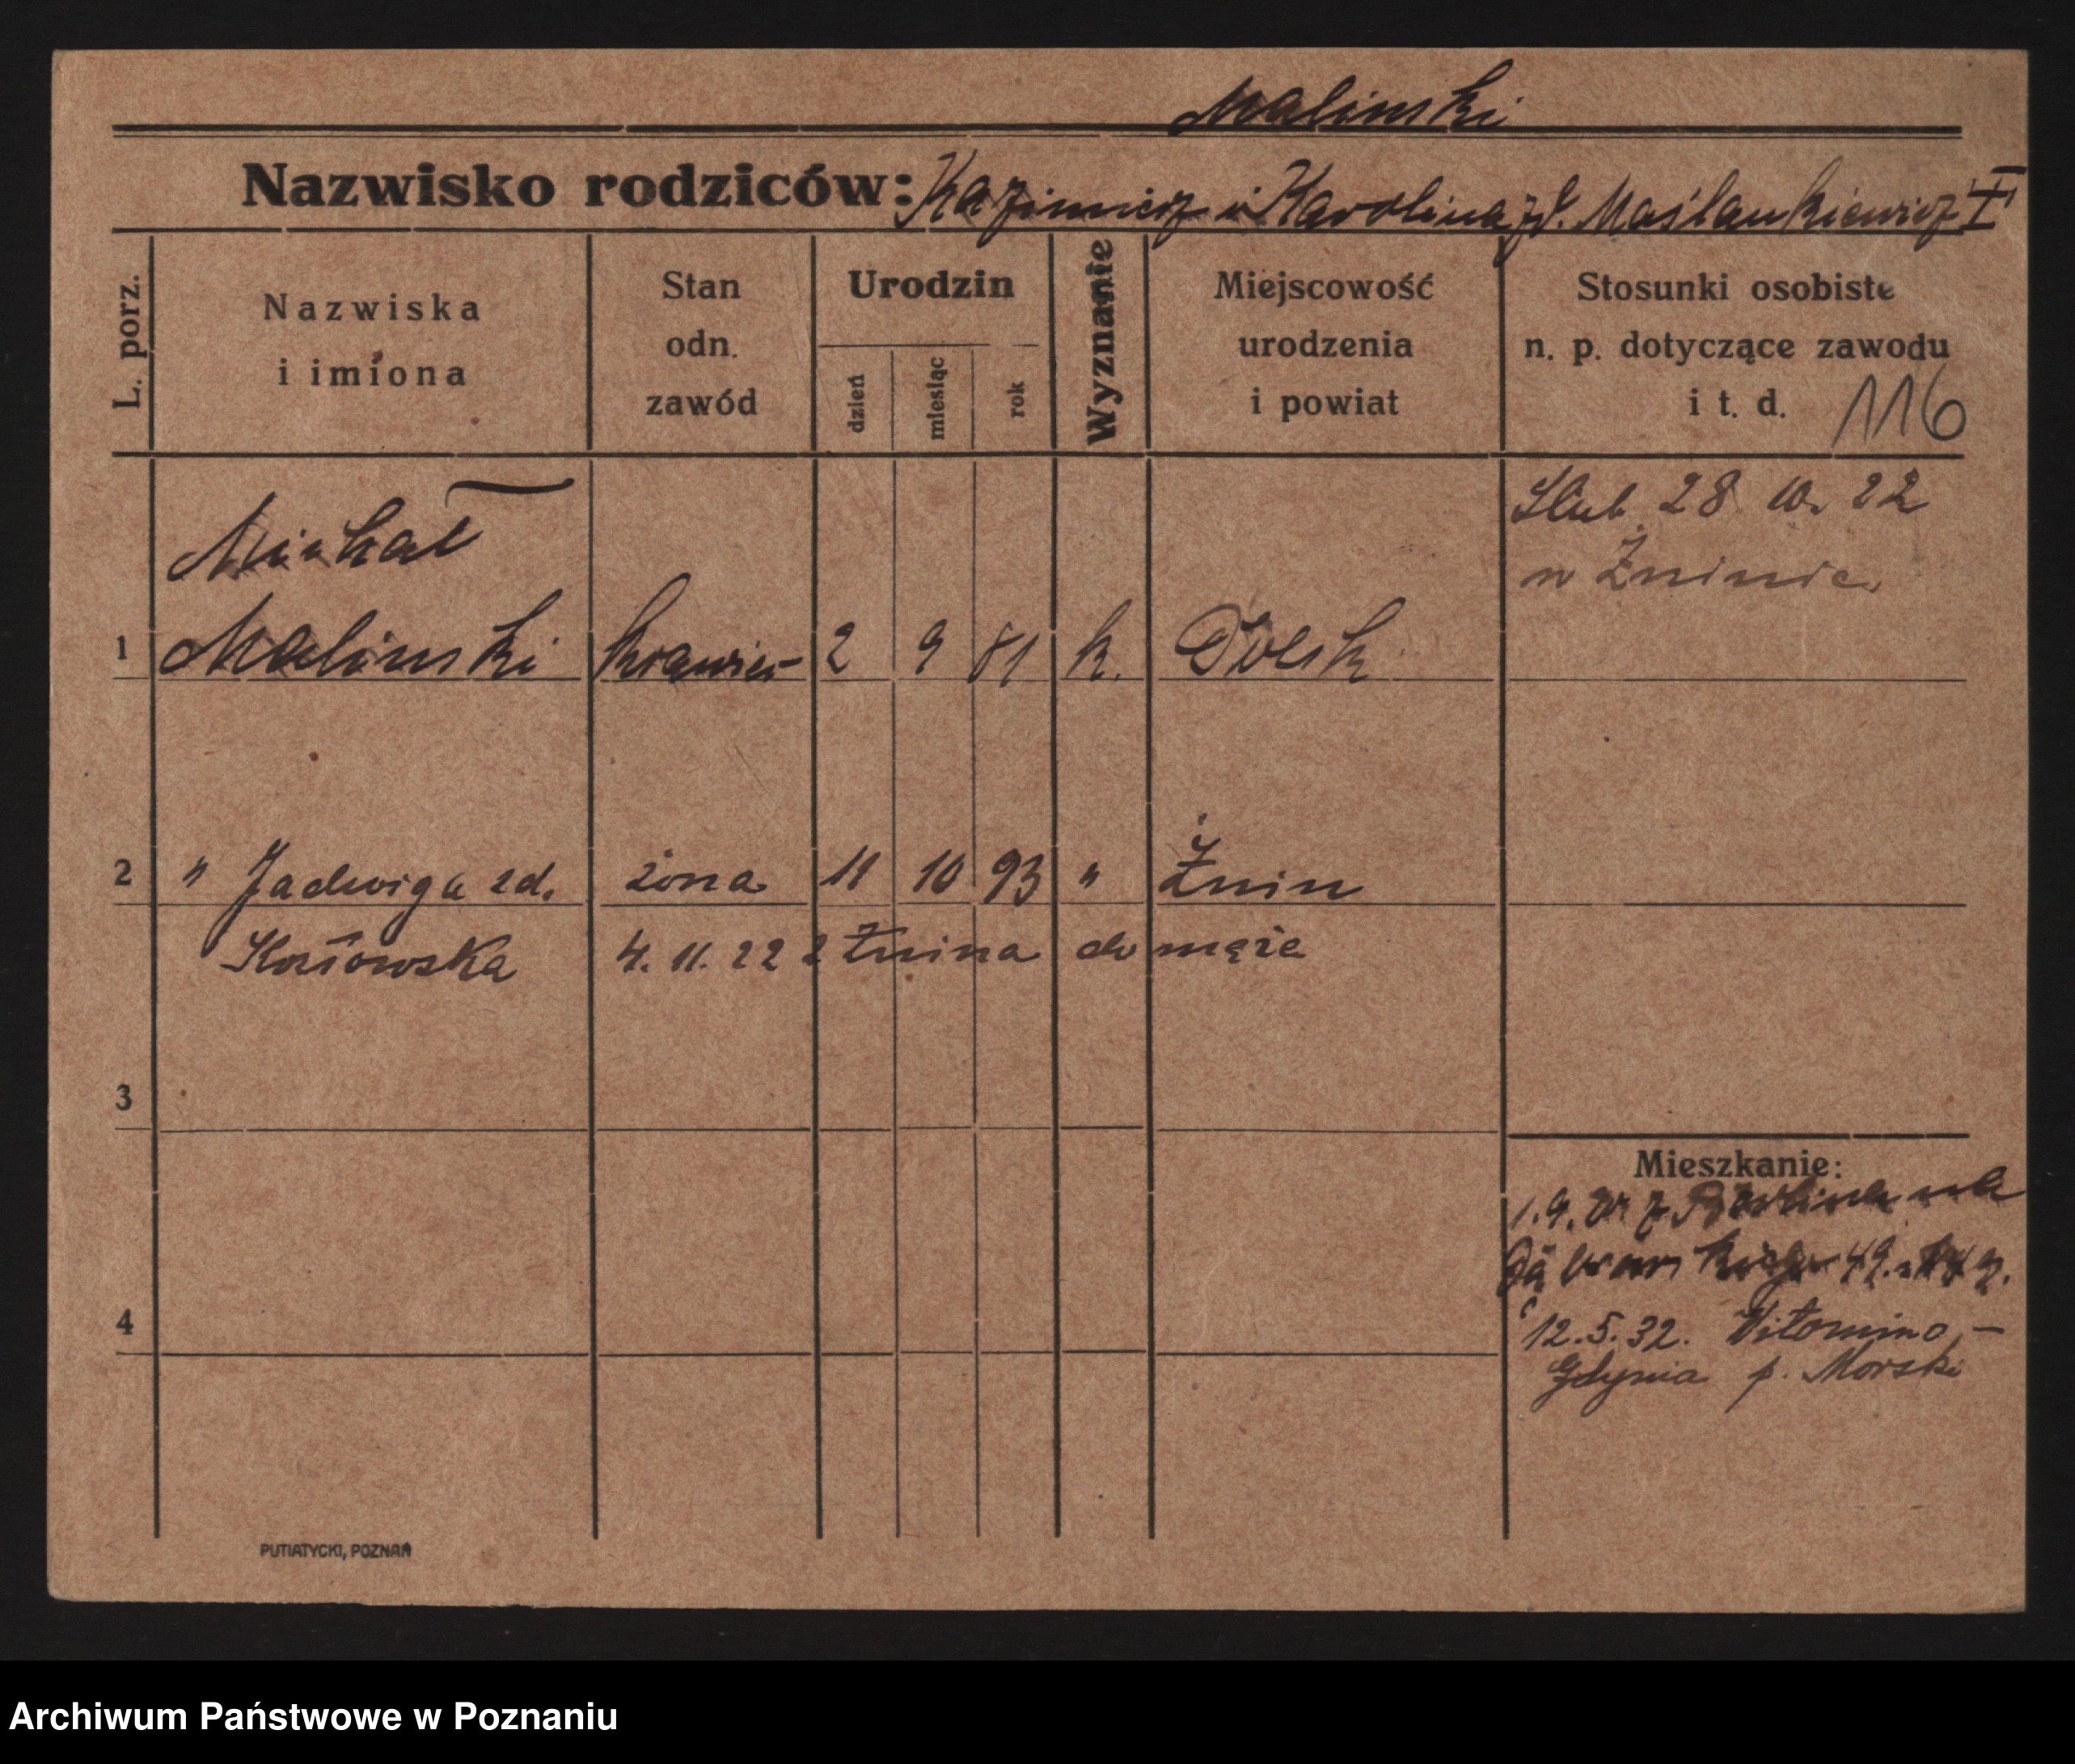 Malinski
Nazwisko rodziców: Kazimierz i Karolina zd. Maślankiewicz I
L. porz.
Nazwiska
i imiona
Stan
odn.
zawód
Urodzin
dzień
miesiąc
rok
Wyznanie
Miejscowość
urodzenia
i powiat
Stosunki osobiste
n. p. dotyczące zawodu
i t. d. 116
Ślub 28 10. 22
w Żninie
Michał
1 Malinski krawiec 2 9 81 k. Dolsk
2 " Jadwiga zd. żona 11 10 93 " Żnin
Kozłowska 4. 11. 22 z Żnina do męża
3
Mieszkanie:
1. 9. z Berlina
Dąbrowskiego 49.
4
12. 5. 32. Witomino -
Gdynia p. Morski
PUTIATYCKI, POZNAŃ
Archiwum Państwowe w Poznaniu